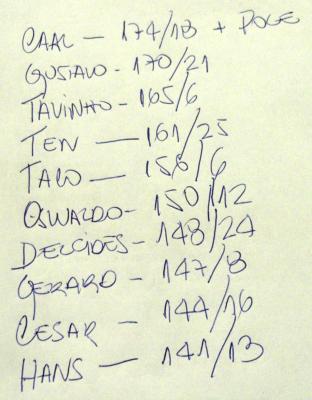 CAAL – 174/18 + POLE
GUSTAVO - 170/21
TAVINHO - 165/6
TEN — 161/25
TALO — 156/6
OSWALDO - 150/12
DELCIDES - 148/24
GERARD - 147/8
CESAR - 144/16
HANS — 141/13